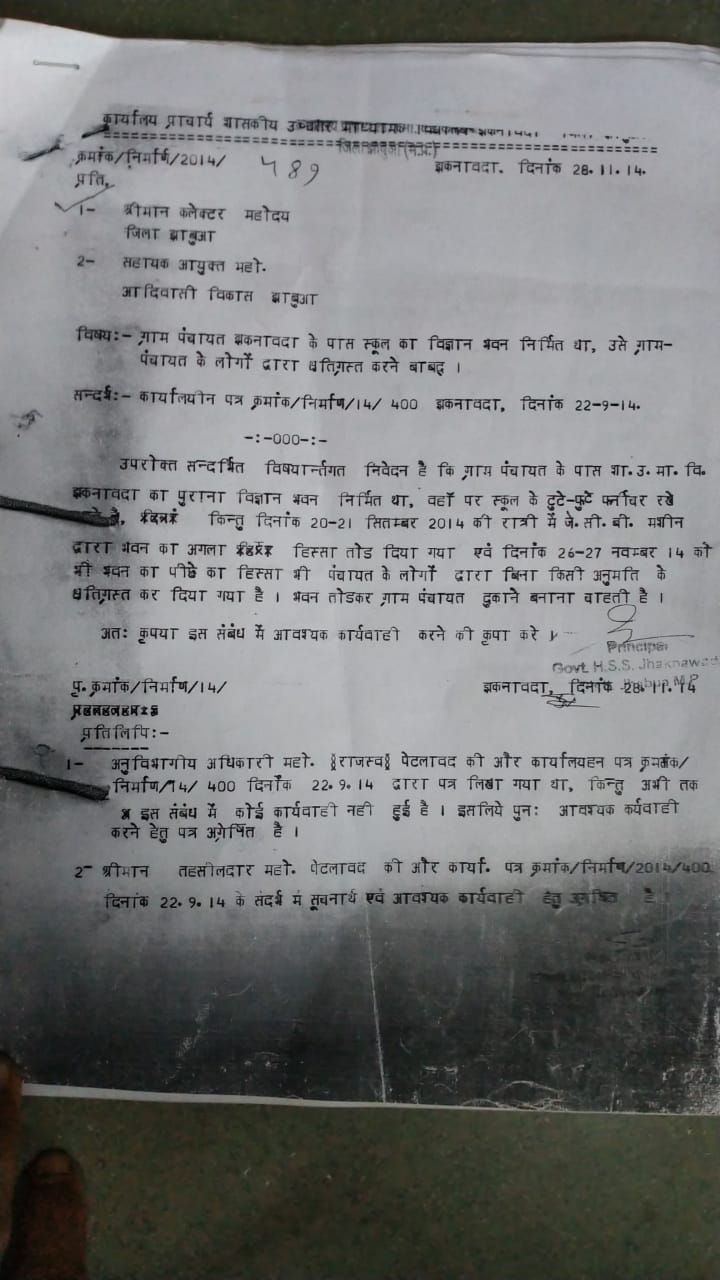 कार्यालय प्राचार्य शासकीय उच्चतर माध्यमिक
जिला झाबुआ (म.प्र.)
क्रमांक/निर्माण/2014/ 489 झकनावदा. दिनांक 28.11.14.
प्रति,
1- श्रीमान कलेक्टर महोदय
जिला झाबुआ
2- सहायक आयुक्त महो.
आदिवासी विकास झाबुआ
विषय:- ग्राम पंचायत झकनावदा के पास स्कूल का विज्ञान भवन निर्मित था, उसे ग्राम-
पंचायत के लोगों द्वारा क्षतिग्रस्त करने बाबद् ।
सन्दर्भ:- कार्यालयीन पत्र क्रमांक/निर्माण/14/ 400 झकनावदा, दिनांक 22-9-14.
-:-000-:-
उपरोक्त सन्दर्भित विषयार्न्तगत निवेदन है कि ग्राम पंचायत के पास शा. उ. मा. वि.
झकनावदा का पुराना विज्ञान भवन निर्मित था, वहाँ पर स्कूल के टुटे-फुटे फर्नीचर रखे
है, किन्तु दिनांक 20-21 सितम्बर 2014 की रात्री में जे. सी. बी. मशीन
द्वारा भवन का अगला हिस्सा तोड दिया गया एवं दिनांक 26-27 नवम्बर 14 को
भी भवन का पीछे का हिस्सा भी पंचायत के लोगों द्वारा बिना किसी अनुमति के
क्षतिग्रस्त कर दिया गया है । भवन तोडकर ग्राम पंचायत दुकाने बनाना चाहती है ।
अत: कृपया इस संबंध में आवश्यक कार्यवाही करने की कृपा करे ।
Principal
Govt. H.S.S. Jhaknawad
Jhabua M.P.
पृ. क्रमांक/निर्माण/14/ झकनावदा, दिनांक 28.11.14
प्रतिलिपि:-
1- अनुविभागीय अधिकारी महो. राजस्व पेटलावद की और कार्यालयहन पत्र क्रमांक/
निर्माण/14/ 400 दिनाँक 22.9.14 द्वारा पत्र लिखा गया था, किन्तु अभी तक
इस संबंध में कोई कार्यवाही नही हुई है । इसलिये पुन: आवश्यक कर्यवाही
करने हेतु पत्र अग्रेषित है ।
2- श्रीमान तहसीलदार महो. पेटलावद की और कार्या. पत्र क्रमांक/निर्माण/2014/400
दिनांक 22.9.14 के संदर्भ में सूचनार्थ एवं आवश्यक कार्यवाही हेतु अग्रेषित है ।